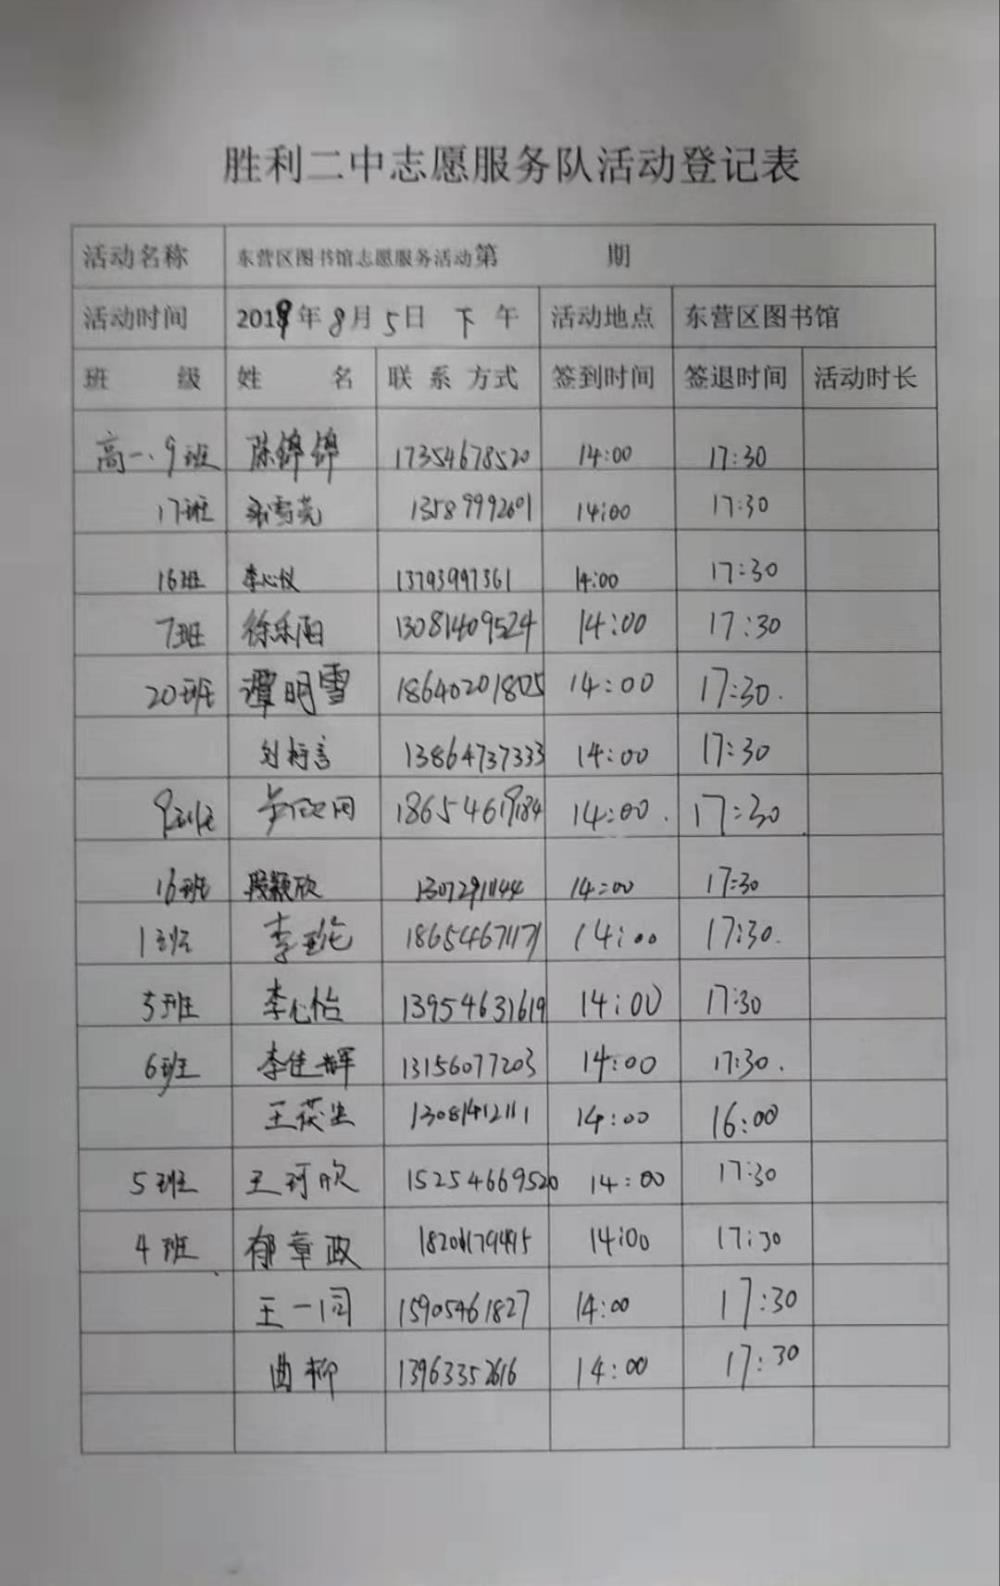 胜利二中志愿服务队活动登记表
活动名称 东营区图书馆志愿服务活动第 期
活动时间 2019年8月5日 下午 活动地点 东营区图书馆
班 级 姓 名 联系方式 签到时间 签退时间 活动时长
高一.9班 陈锦锦 17354678520 14:00 17:30
17班 13589992601 14:00 17:30
16班 李心仪 13793997361 14:00 17:30
7班 徐乐阳 13081409524 14:00 17:30
20班 谭明雪 18640201805 14:00 17:30.
13864737333 14:00 17:30
9班 14:00. 17:30
16班 段颖欣 14:00 17:30
1班 18654671171 14:00 17:30.
5班 李心怡 13954631619 14:00 17:30
6班 李佳辉 13156077203 14:00 17:30.
王茯生 13081412111 14:00 16:00
5班 王珂欣 15254669520 14:00 17:30
4班 郁章政 14:00 17:30
王一同 15905461827 14:00 17:30
曲柳 13963352616 14:00 17:30